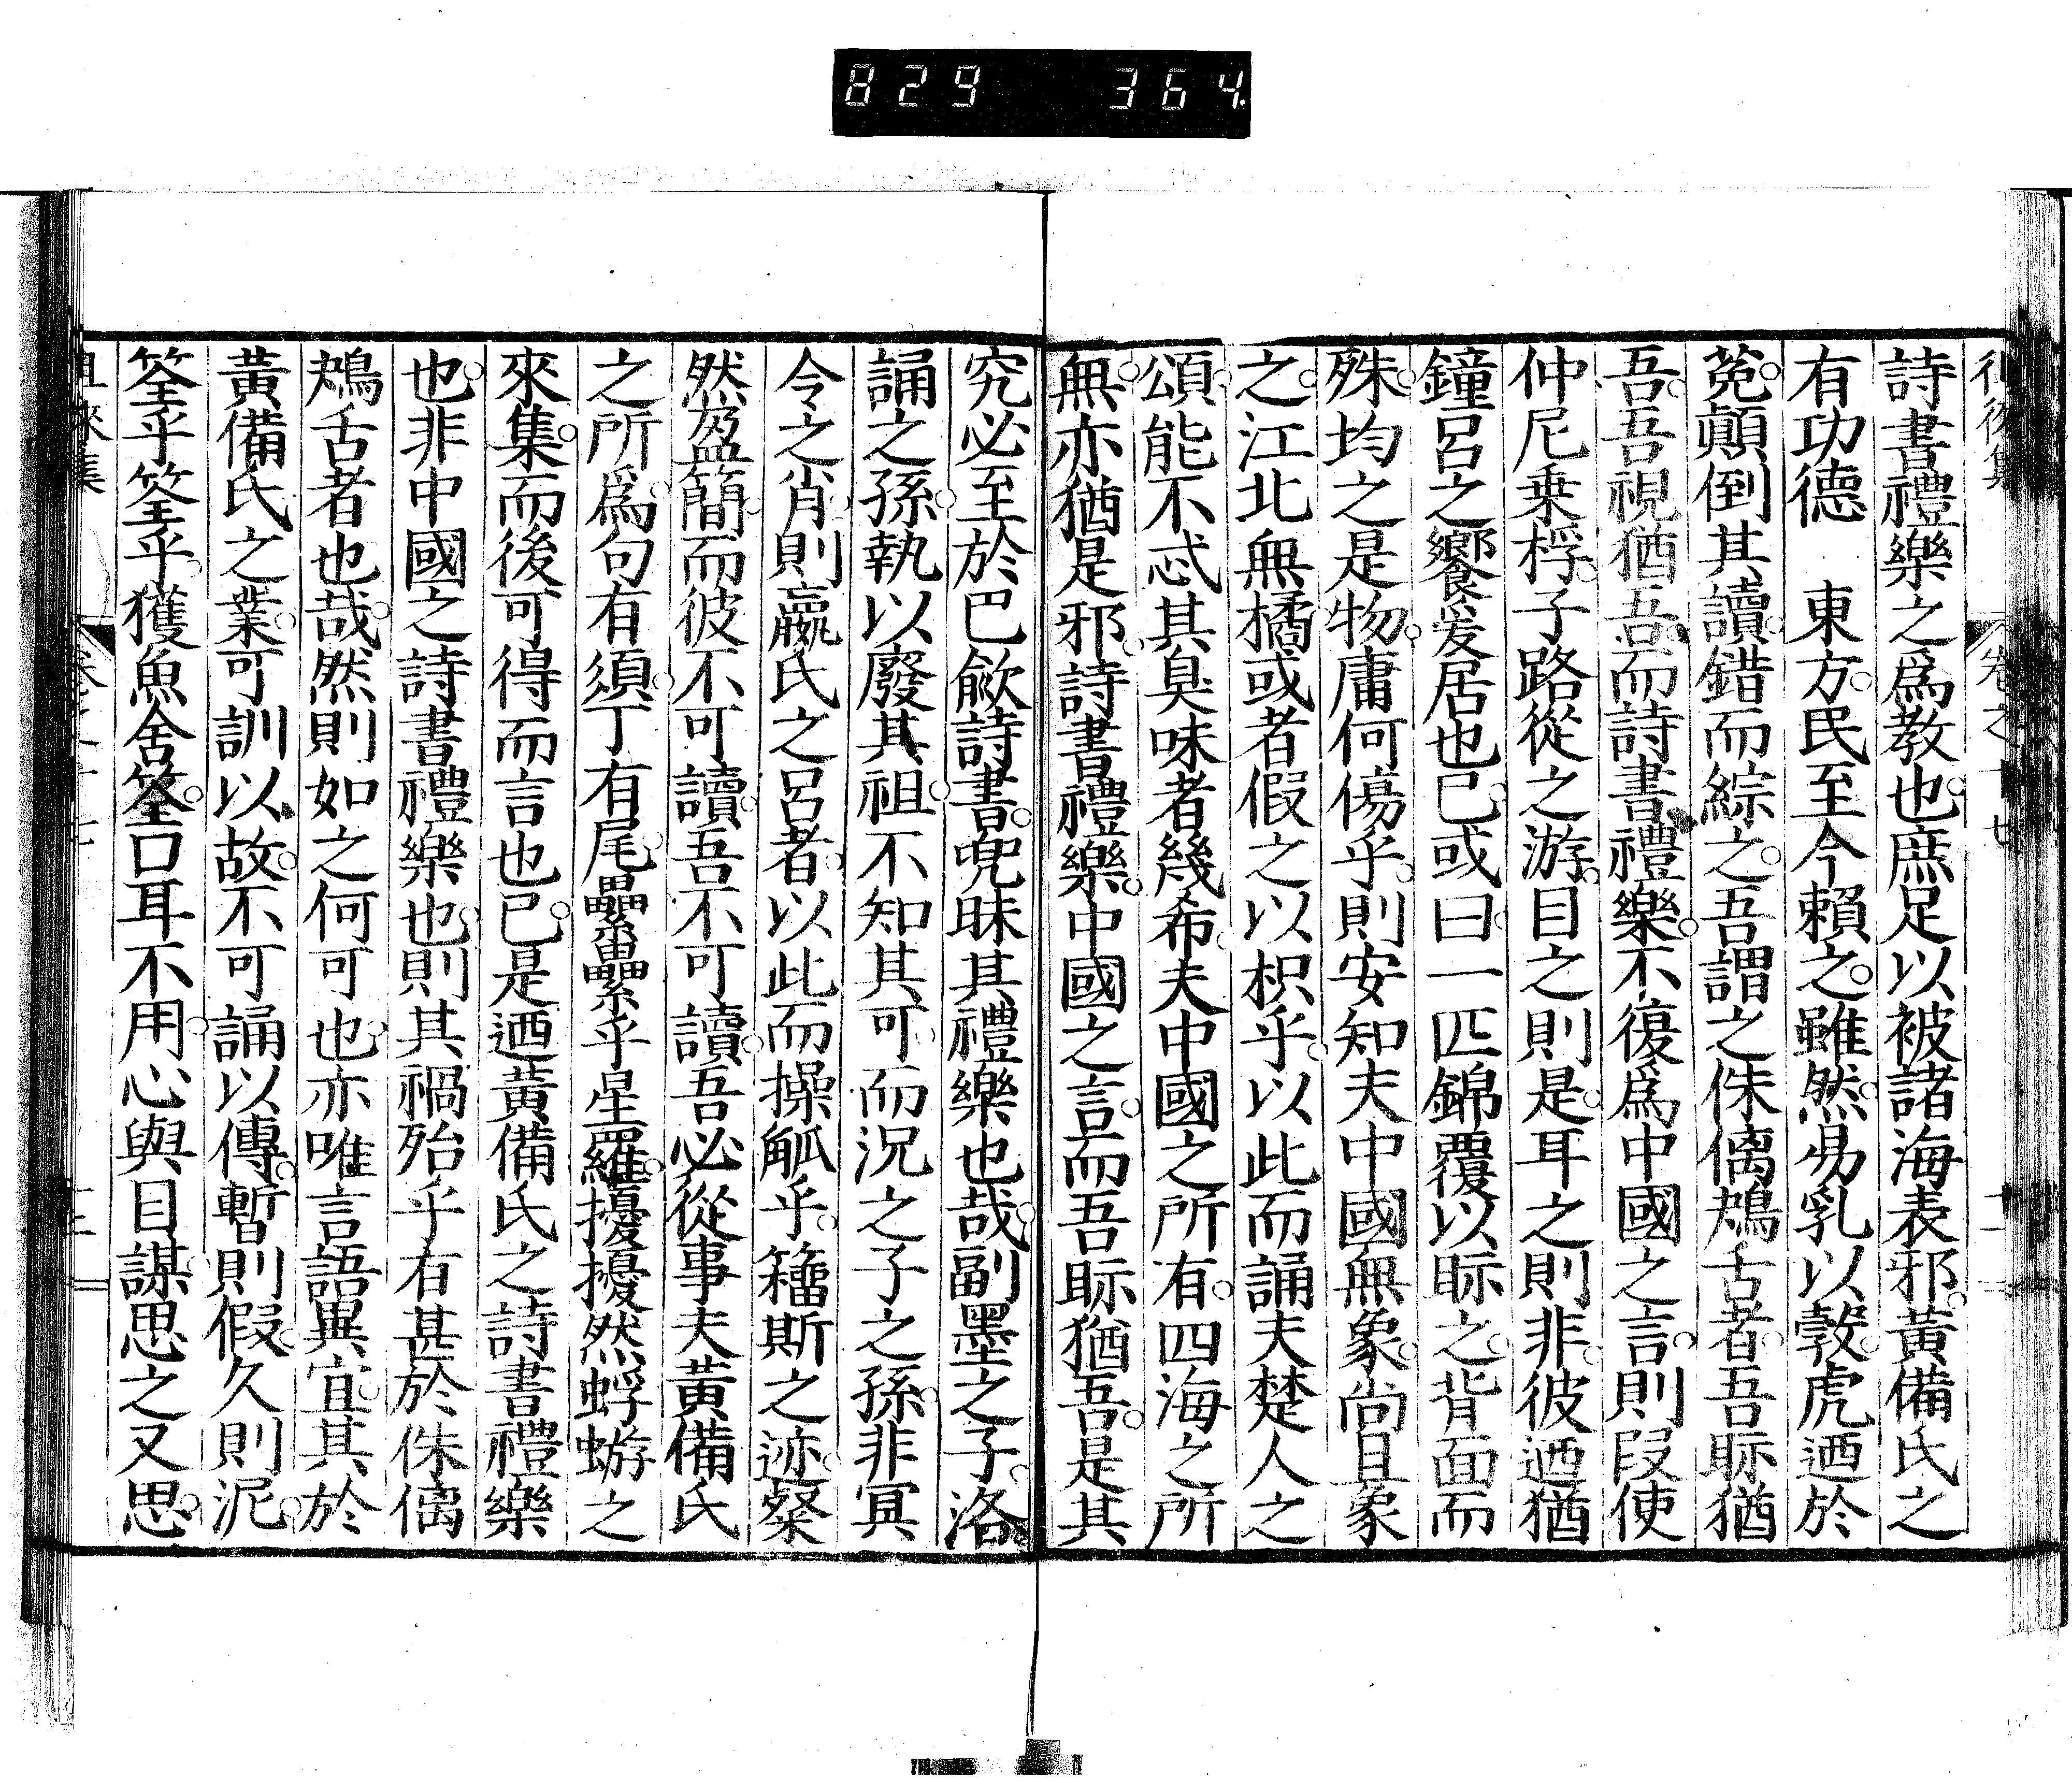 829 364.
詩書禮樂之爲教也。庶足以被諸海表邪。黃備氏之
有功德　東方。民至今賴之。雖然。易乳以㝅。虎迺於
菟。顛倒其讀。錯而綜之。吾謂之侏𠌯鴂舌者。吾眎猶
吾。吾視猶吾。而詩書禮樂。不復爲中國之言。則叚使
仲尼乗桴。子路從之游。目之則是。耳之則非。彼迺猶
鐘呂之饗爰居也已。或曰。一匹錦覆以眎之。背面而
殊。均之是物。庸何傷乎。則安知夫中國無象。尚且象
之。江北無橘。或者假之以枳乎。以此而誦夫楚人之
頌。能不忒其臭味者幾希。夫中國之所有。四海之所
無。亦猶是邪。詩書禮樂。中國之言。而吾眎猶吾。是其
究必至於巴歈詩書。兜昧其禮樂也哉。副墨之子。洛
誦之孫。執以廢其祖。不知其可。而況之子之孫。非冥
令之肖。則嬴氏之呂者。以此而操觚乎。籒斯之迹。粲
然盈簡。而彼不可讀。吾不可讀。吾必從事夫黃備氏
之所爲。句有須。丁有尾。纍纍乎星羅。擾擾然蜉蝣之
來集。而後可得而言也已。是迺黃備氏之詩書禮樂
也。非中國之詩書禮樂也。則其禍殆乎有甚於侏𠌯
鴂舌者也哉。然則如之何可也。亦唯言語異宜。其於
黃備氏之業。可訓以故。不可誦以傳。暫則假。久則泥。
筌乎筌乎。獲魚舍筌。口耳不用。心與目謀。思之又思。